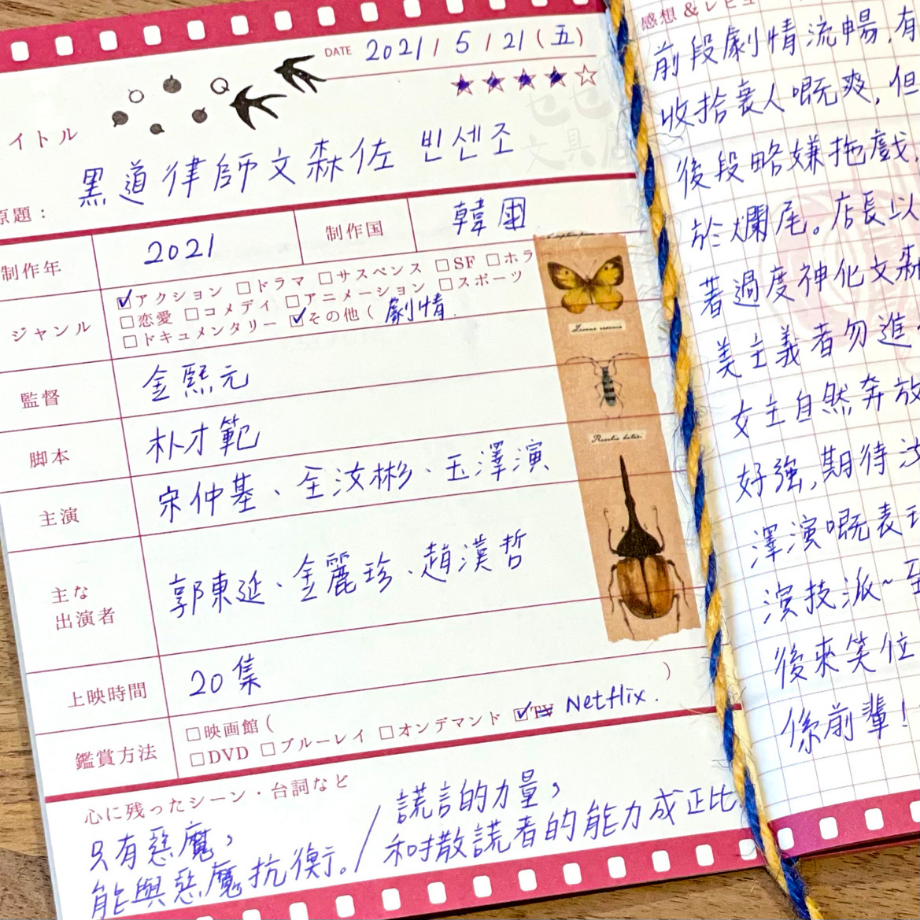 DATE 2021 / 5 / 21 (五)
イトル
黑道律師文森佐 빈센조
原題：
制作年 2021 制作国 韓国
ジャンル
☑アクション □ドラマ □サスペンス □SF □ホラ
□恋愛 □コメディ □アニメーション □スポーツ
□ドキュメンタリー ☑その他( 劇情.
監督 金熙元
脚本 朴才範
主演 宋仲基、全汝彬、玉澤演
主な
出演者 郭東延、金麗珍、趙漢哲
上映時間 20集
鑑賞方法
□映画館( )
□DVD □ブルーレイ □オンデマンド ☑TV Netflix.
心に残ったシーン・台詞など
只有惡魔，
能與惡魔抗衡。/
謊言的力量，
和撒謊者的能力成正比
感想&レビュ
前段劇情流暢，有
收拾衰人嘅爽，但
後段略嫌拖戲，
於爛尾。店長以
著過度神化文森
美主義者勿進
女主自然奔放
好強，期待
澤演嘅表
演技派~至
後來笑位
係前輩！